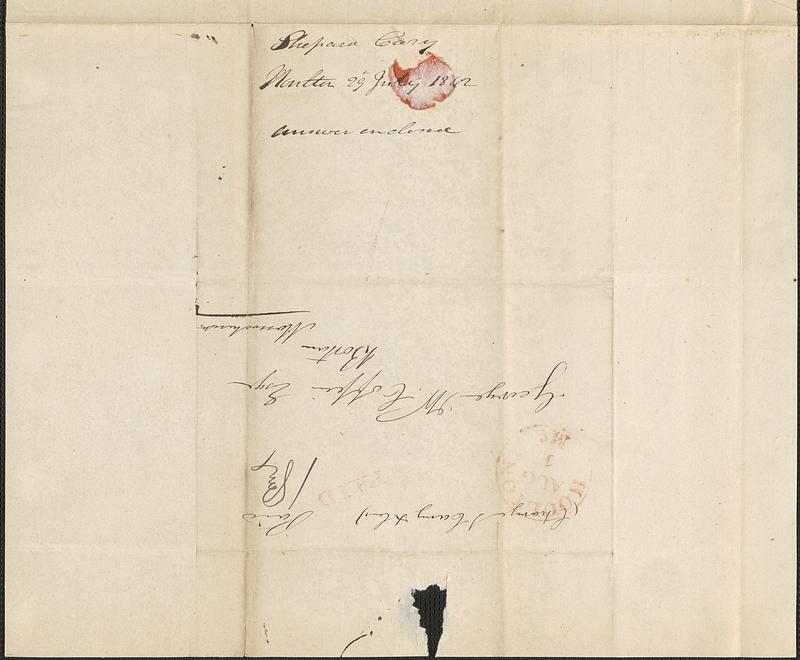 Shepard Cary
Houlton 29 July 1842
answer enclosed
(Charge S Cary & Co)
Paid
PAID
HOULTON
AUG
1
Me.
George W. Coffin Esqr
Boston
Massachusetts